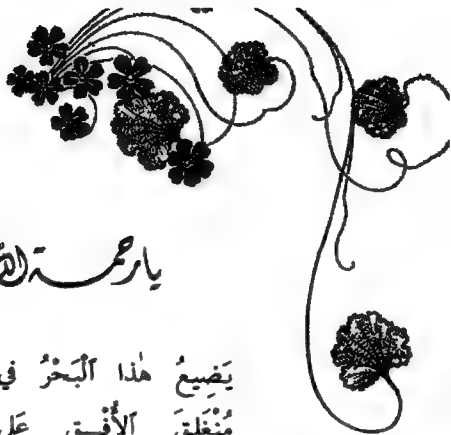 يا رحمة
يَضِيعُ هٰذا ٱلْبَحْرُ في
مُنْغَلِقَ ٱلأُفْقِ